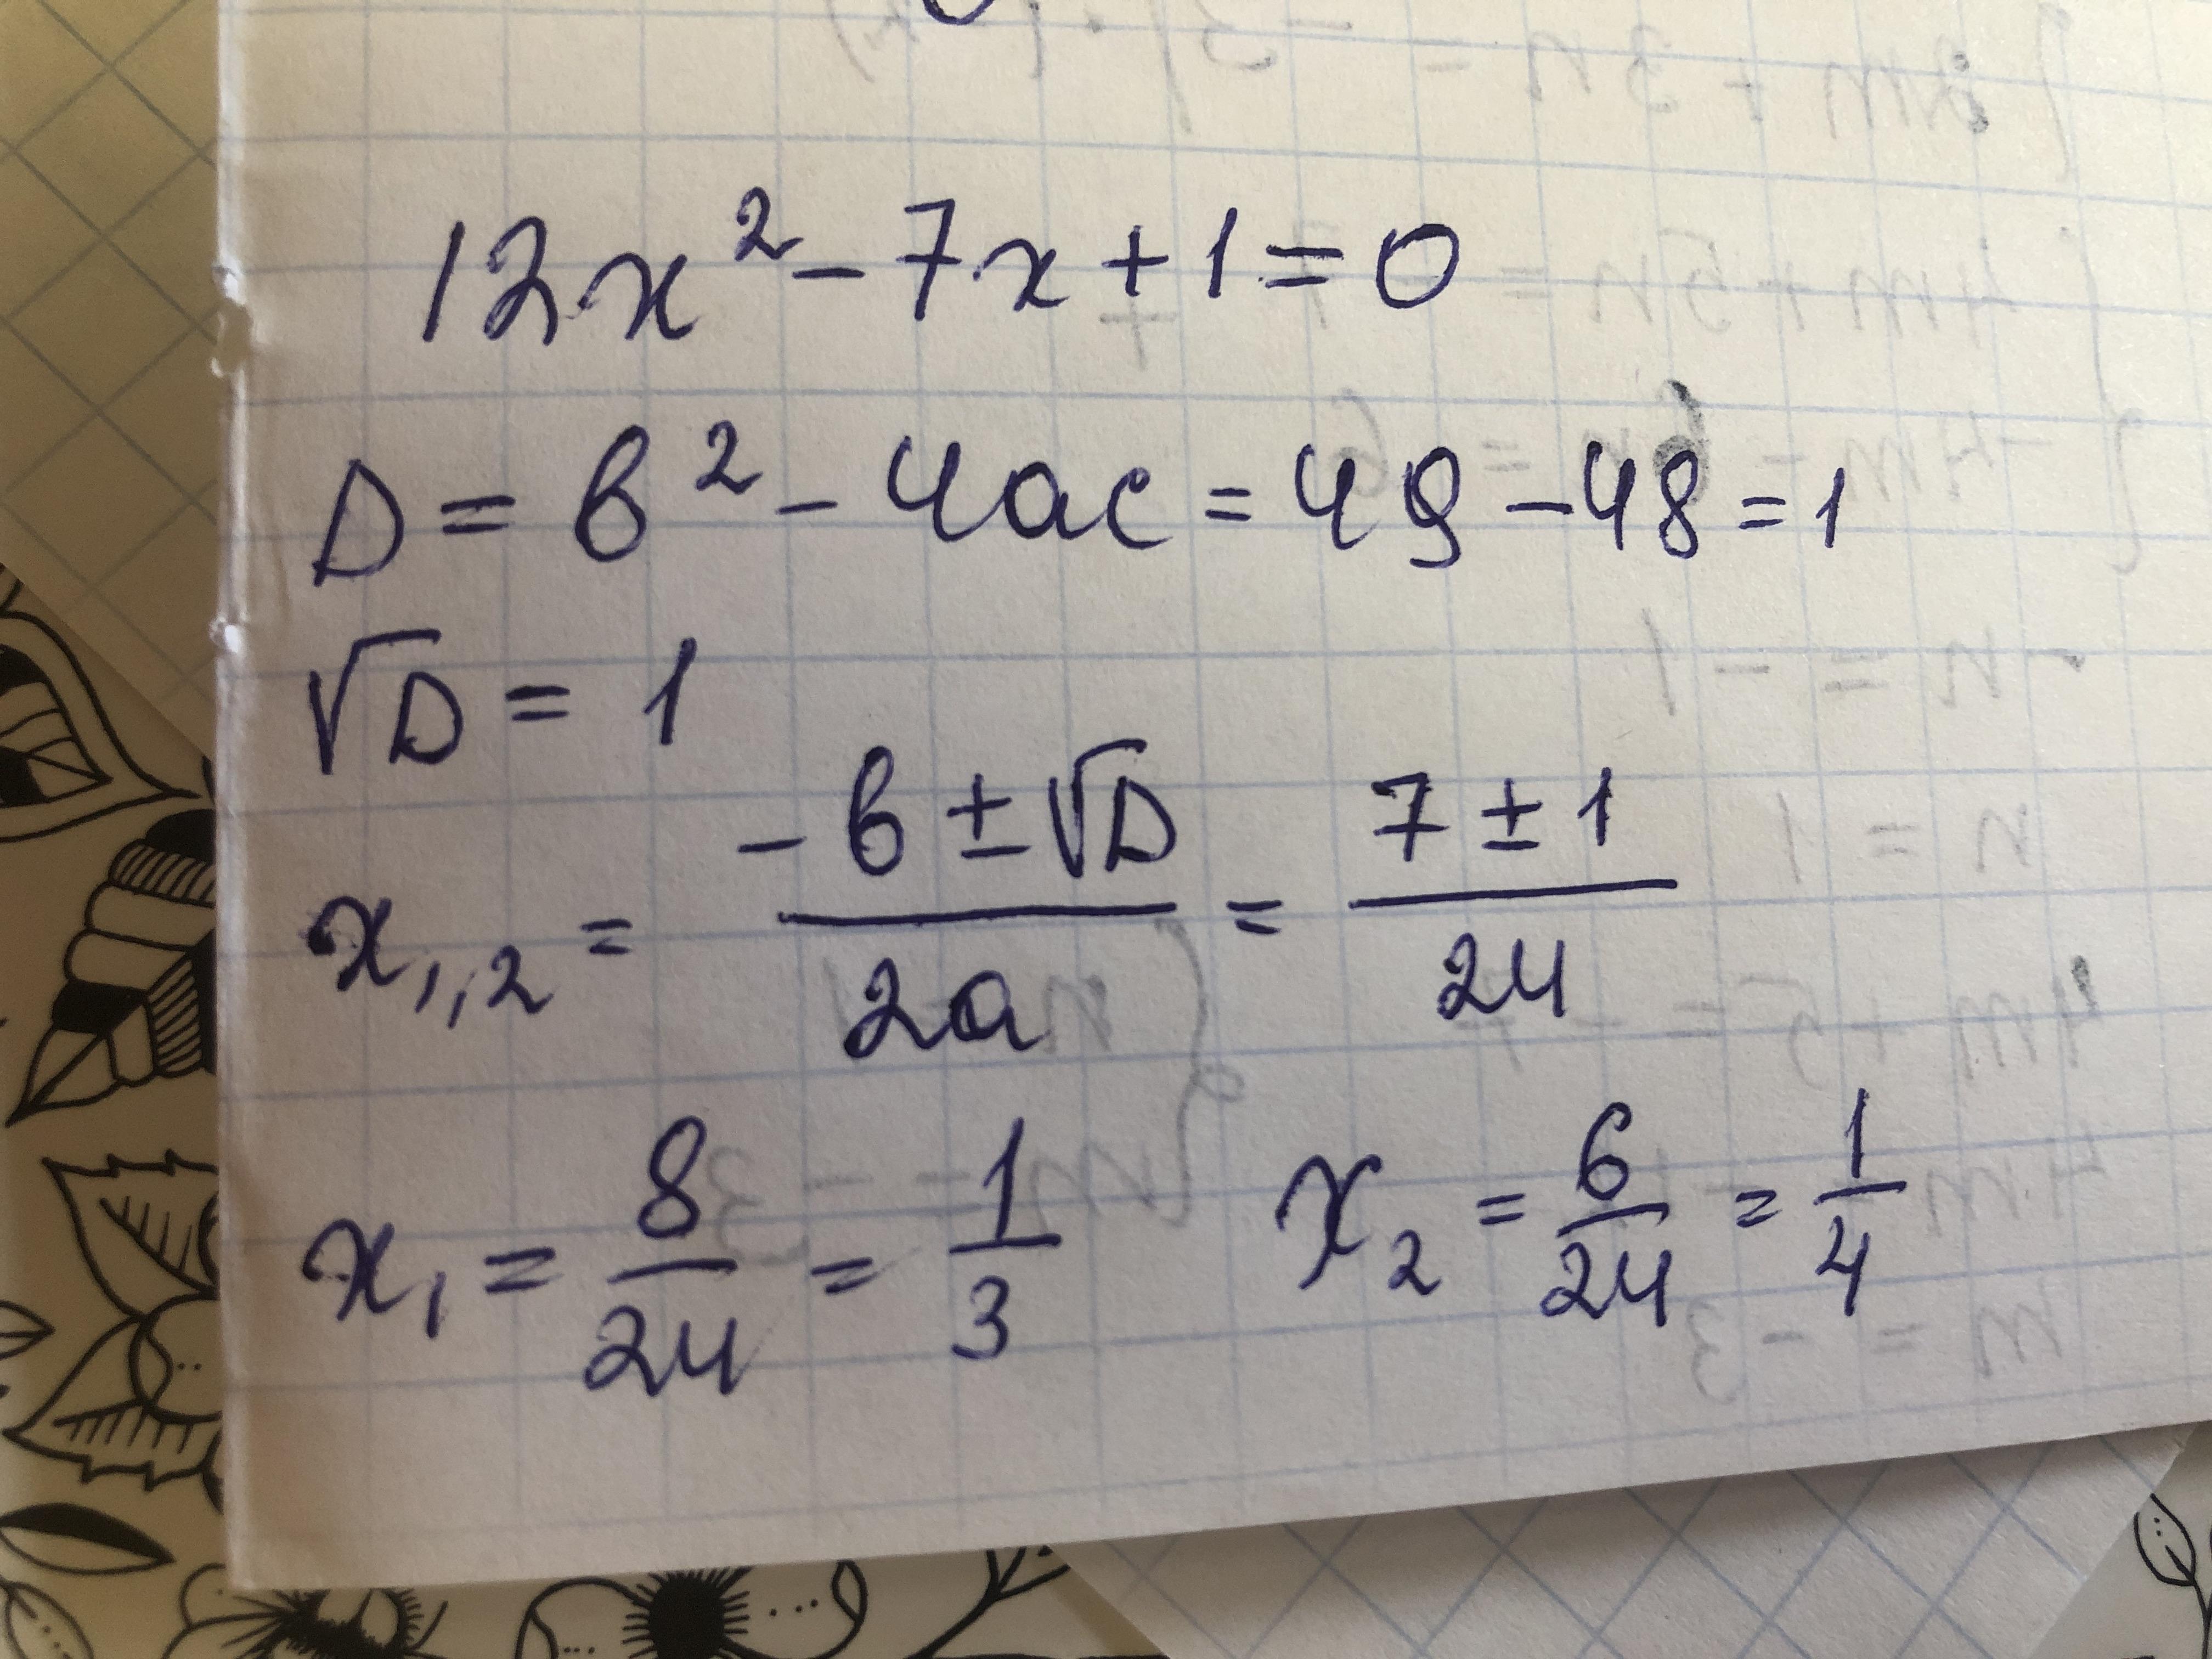 12x² - 7x + 1 = 0
D = b² - 4ac = 49 - 48 = 1
√D = 1
x₁,₂ = (-b ± √D)/(2a) = (7 ± 1)/24
x₁ = 8/24 = 1/3    x₂ = 6/24 = 1/4